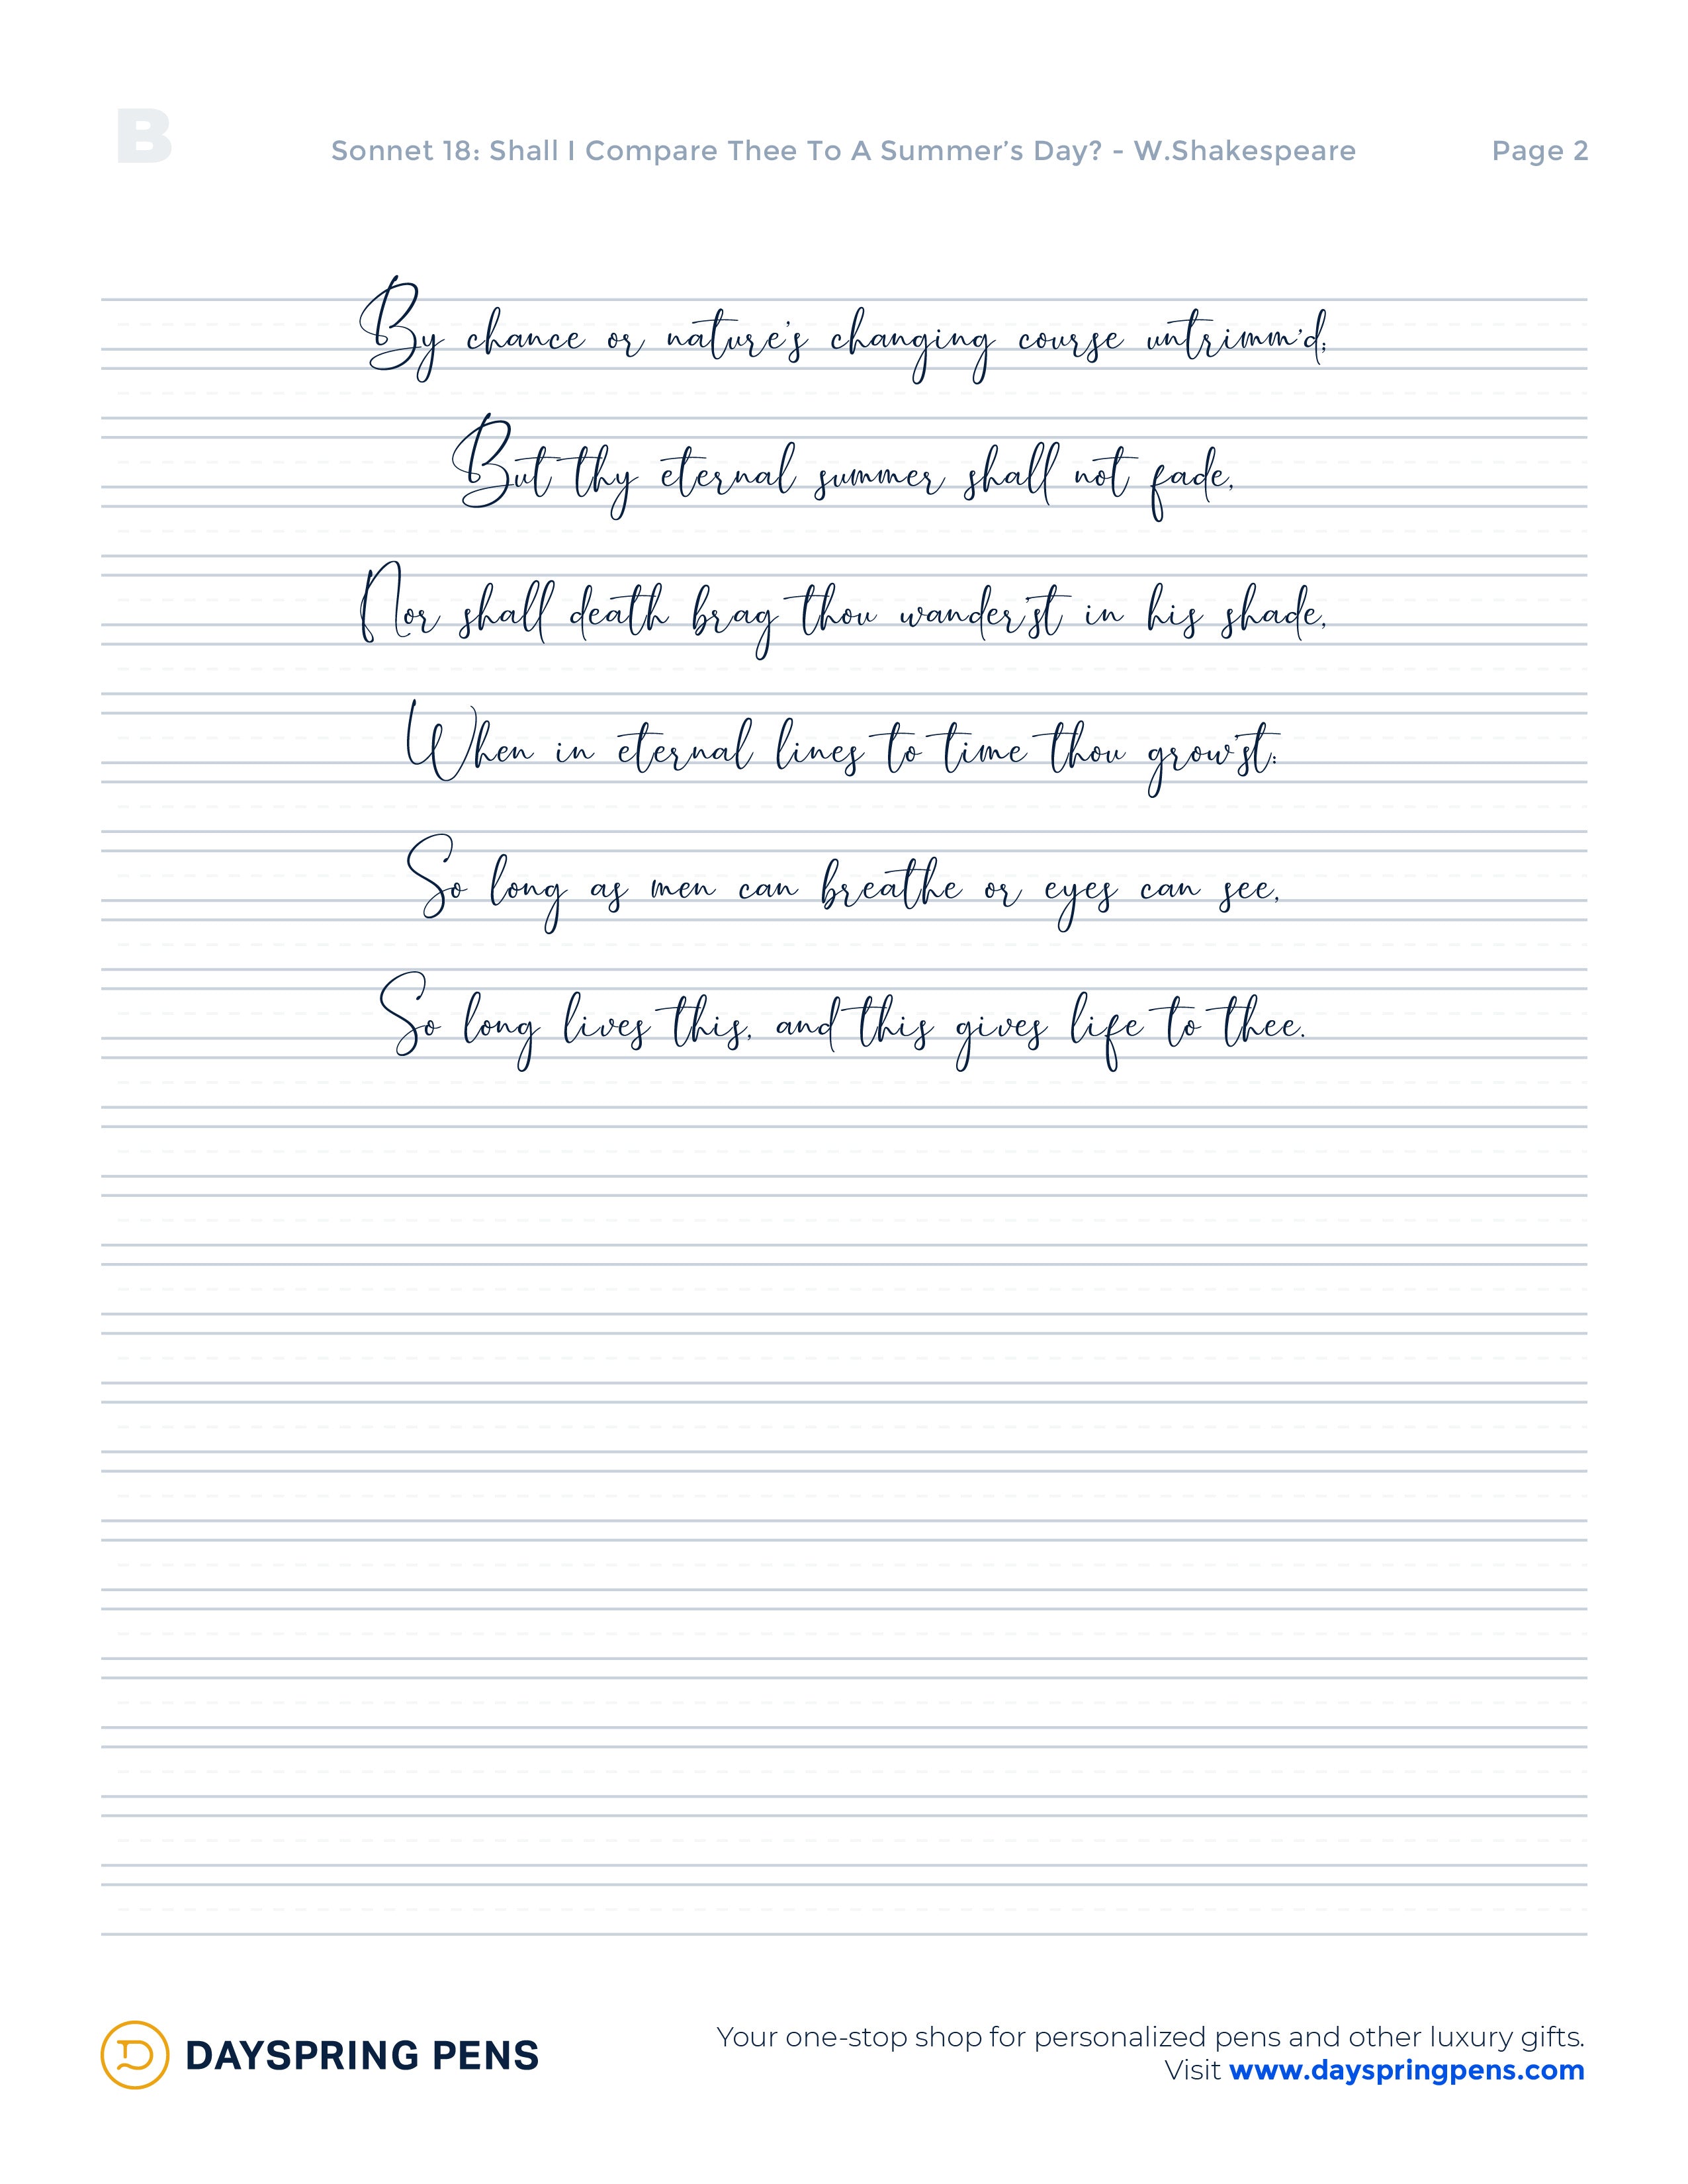 B
Sonnet 18: Shall I Compare Thee To A Summer’s Day? - W.Shakespeare
Page 2
By chance or nature's changing course untrimm'd;
But thy eternal summer shall not fade,
Nor shall death brag thou wander'st in his shade,
When in eternal lines to time thou grow'st:
So long as men can breathe or eyes can see,
So long lives this, and this gives life to thee.
DAYSPRING PENS
Your one-stop shop for personalized pens and other luxury gifts.
Visit www.dayspringpens.com